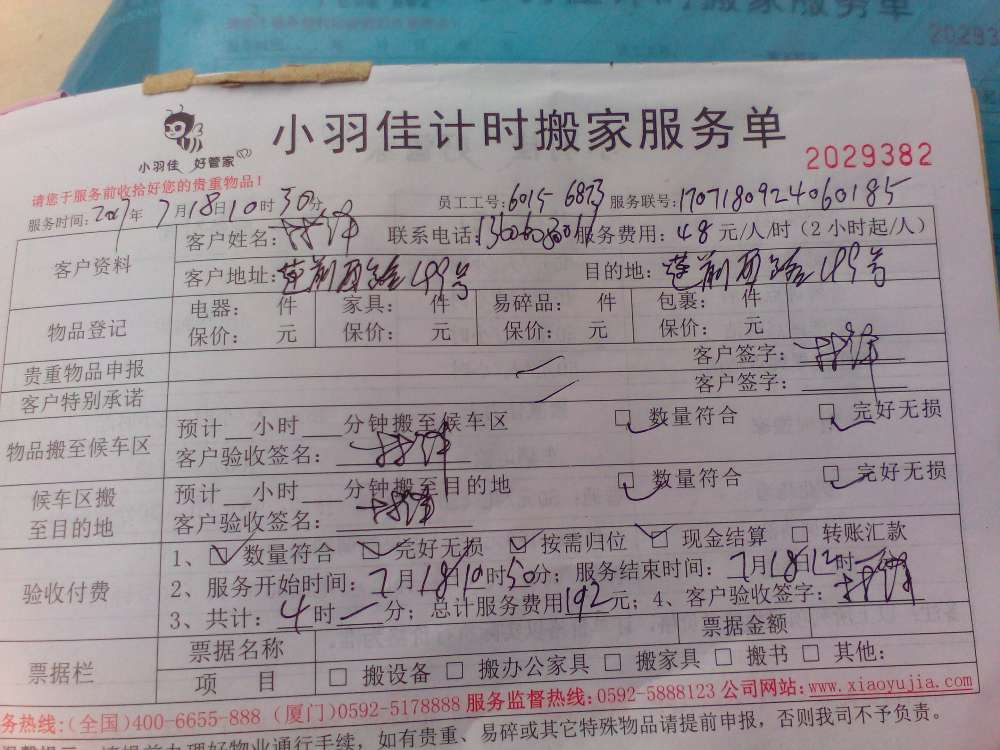 小羽佳计时搬家服务单
小羽佳 好管家
2029382
请您于服务前收拾好您的贵重物品！
服务时间：2017年7月18日10时30分 员工工号：6015 6873 服务联号：1707180924060185
客户资料 客户姓名： 联系电话： 服务费用：48元/人/时（2小时起/人）
客户地址：莲前西路499号 目的地：莲前西路499号
物品登记 电器： 件 家具： 件 易碎品： 件 包裹： 件
保价： 元 保价： 元 保价： 元 保价： 元
贵重物品申报 客户签字：
客户特别承诺 客户签字：
物品搬至候车区 预计__小时___分钟搬至候车区 □ 数量符合 □ 完好无损
客户验收签名：
候车区搬至目的地 预计__小时___分钟搬至目的地 □ 数量符合 □ 完好无损
客户验收签名：
验收付费 1、☑ 数量符合 ☑ 完好无损 ☑ 按需归位 ☑ 现金结算 □ 转账汇款
2、服务开始时间：7月18日10时50分；服务结束时间：7月18日12时
3、共计：4时一分；总计服务费用192元；4、客户验收签字：
票据栏 票据名称 票据金额
项 目 □ 搬设备 □ 搬办公家具 □ 搬家具 □ 搬书 □ 其他：
务热线：(全国)400-6655-888 (厦门)0592-5178888 服务监督热线：0592-5888123 公司网站：www.xiaoyujia.com
请提前办理好物业通行手续，如有贵重、易碎或其它特殊物品请提前申报，否则我司不予负责。